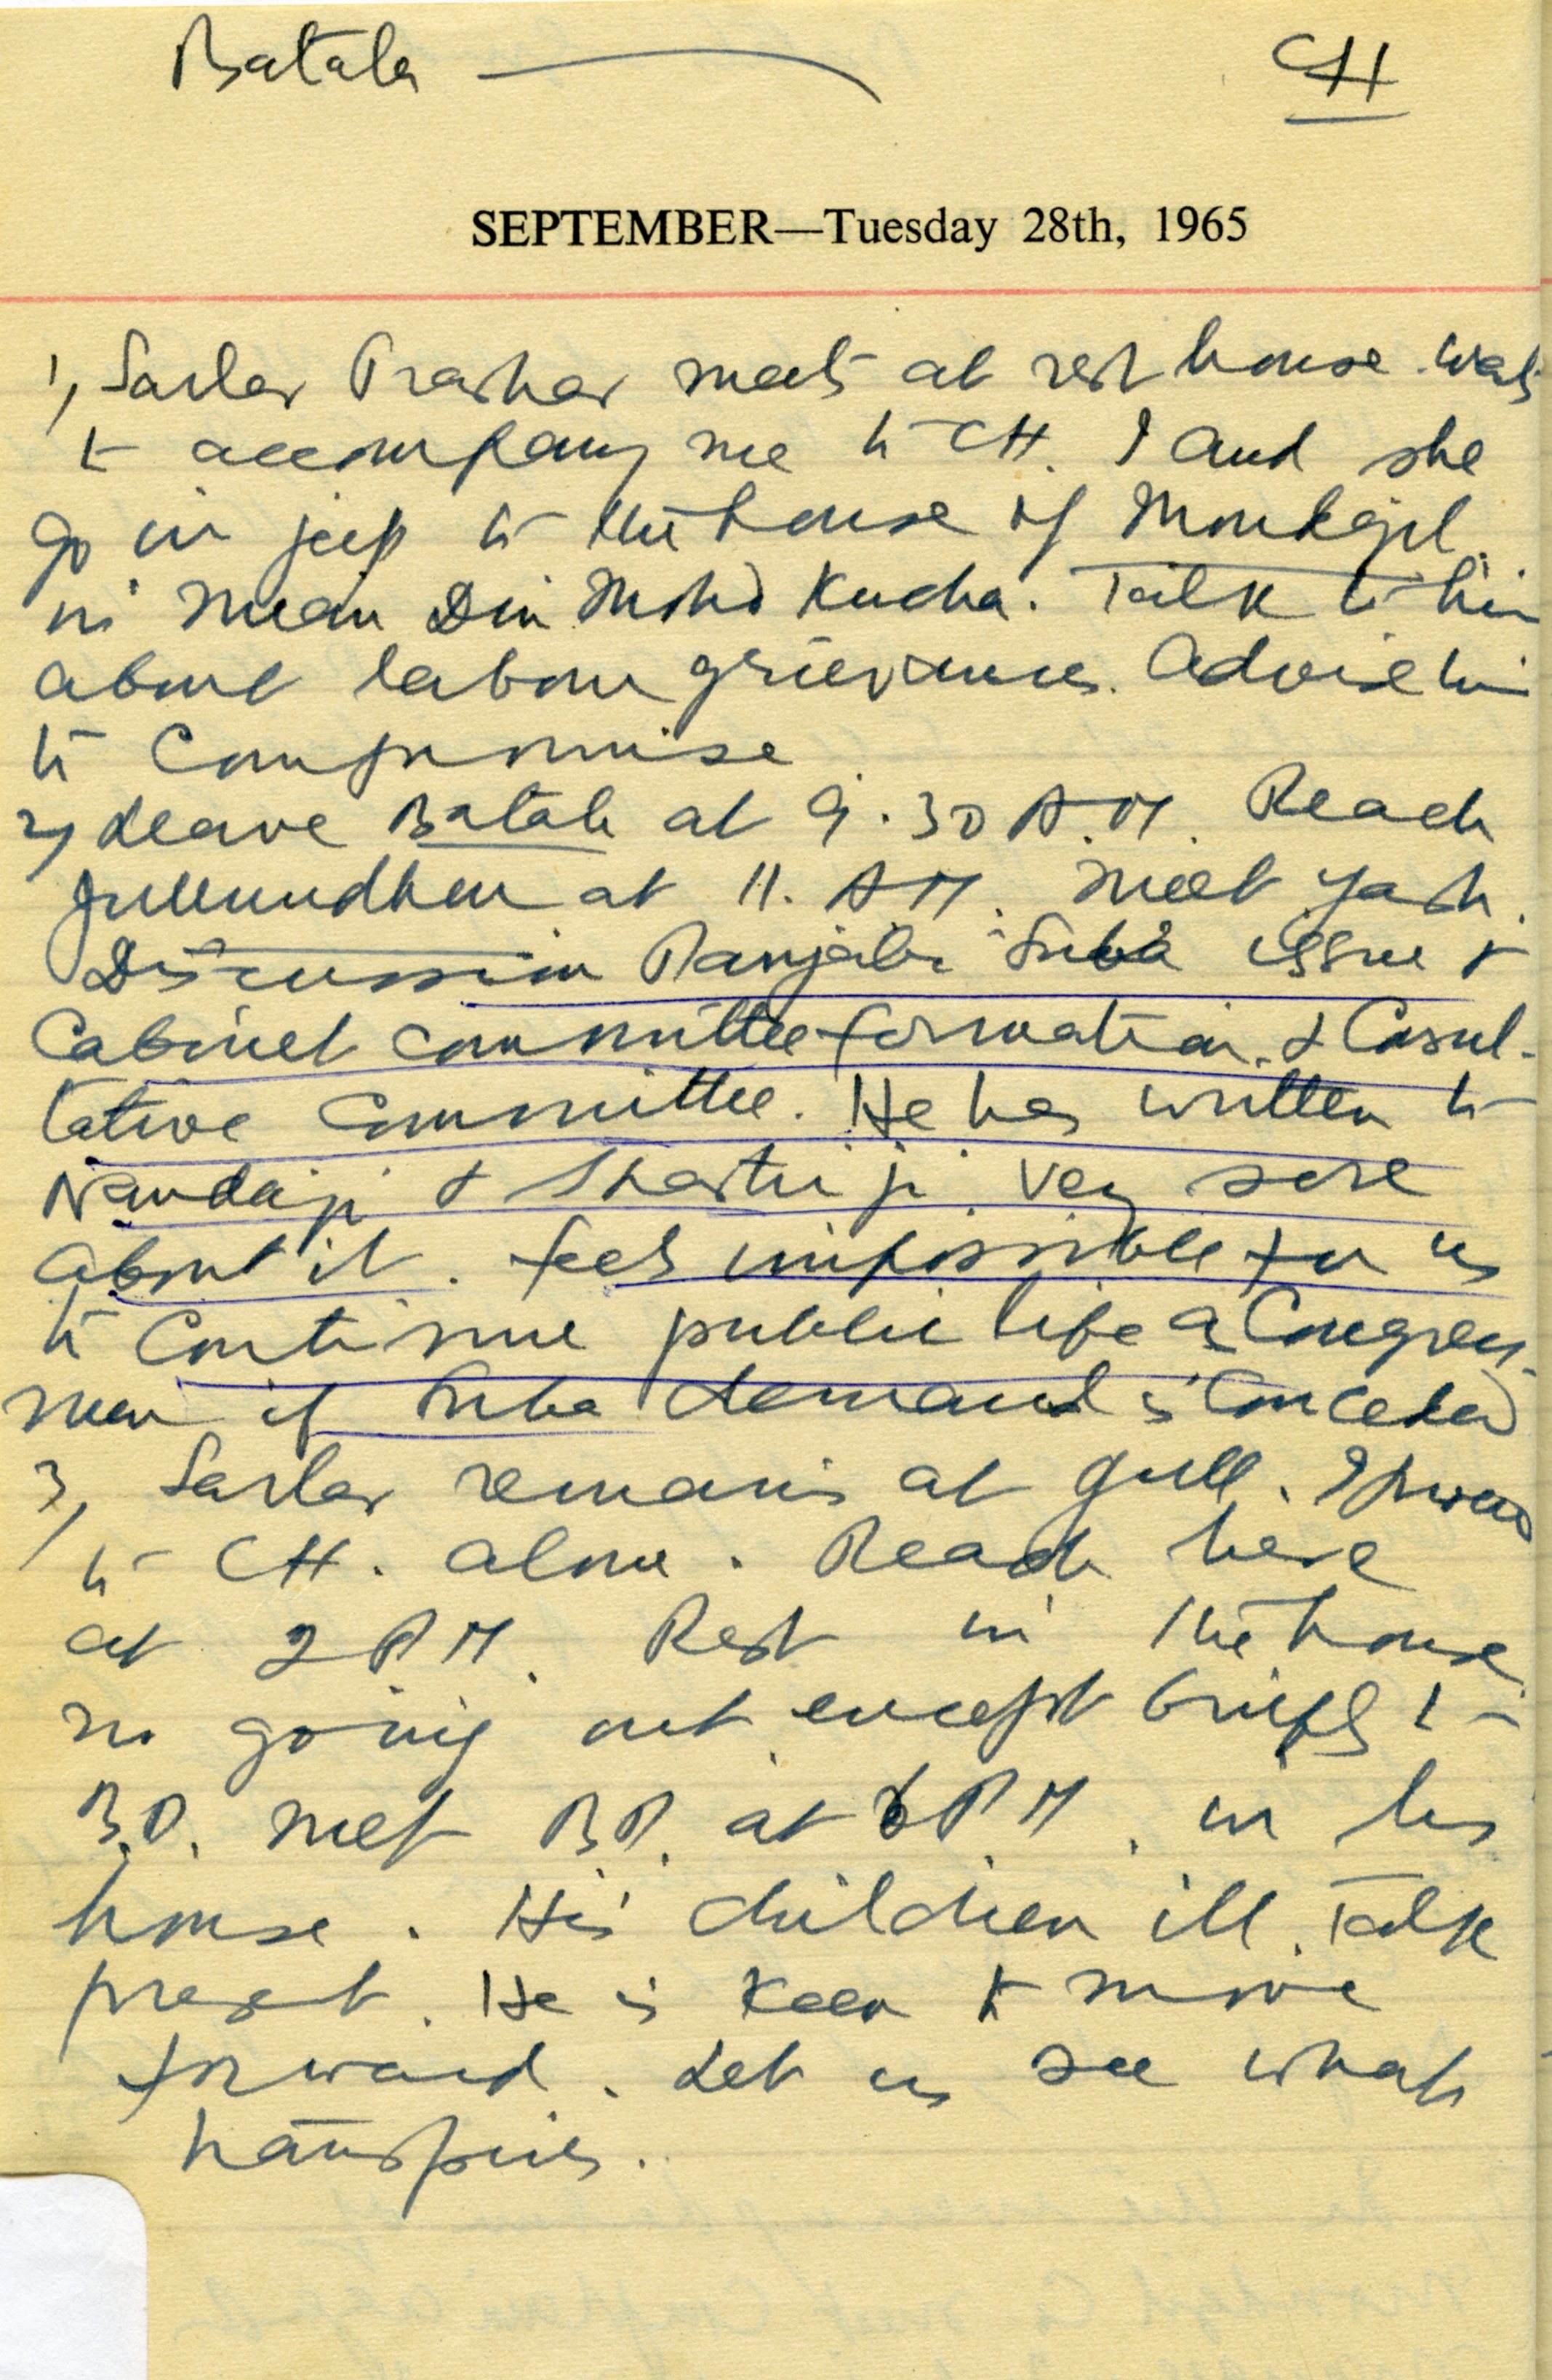 Batala — CH
SEPTEMBER—Tuesday 28th, 1965
1, Sarla Prashar meets at rest house. Wants
to accompany me to CH. I and she
go in jeep to the house of
in Mian Din Mohd Kucha. Talk to him
about labour grievances. Advise him
to compromise
2, Leave Batala at 9.30 A.M. Reach
Jullundhur at 11. AM. Meet Yash.
Discussion Panjabi Suba issue &
Cabinet Committee formation. & Consul-
tative Committee. He has written to
Nandaji & Shastriji. Very sore
about it. feels impossible for us
to continue public life as Congress-
men if Suba demand is conceded
3, Sarla remains at Jull. I proceed
to CH. alone. Reach here
at 2 PM. Rest in the house
no going out except briefly to
B.D. Meet B.D. at 6 P.M. in his
house. His children ill. Talk
present. He is keen to move
forward. Let us see what
transpires.